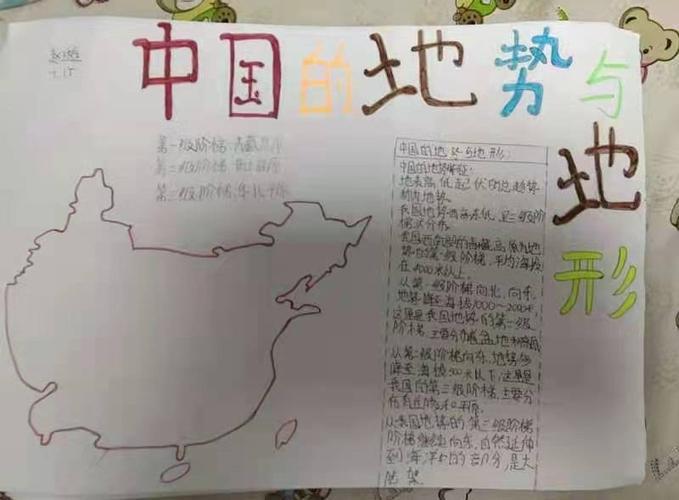 中国的地势与
地
形
第一级阶梯·青藏高原
第二级阶梯
第三级阶梯·华北平原
中国的地势与地形:
中国的地势特征:
地表高低起伏的总趋势
称为地势。
我国地势西高东低,呈三级阶
梯状分布。
我国西南部的青藏高原地
势为第一级阶梯,平均海拔
在4000米以上。
从第一级阶梯向北、向东,
地势降至海拔1000~2000米,
这里是我国地势的第二级
阶梯,主要分布盆地和高原
从第二级阶梯向东,地势多
降至海拔500米以下,这里是
我国的第三级阶梯,主要分
布着丘陵和平原。
从我国地势的第三级阶梯
阶梯继续向东,自然延伸
到海洋的部分,是大
陆架